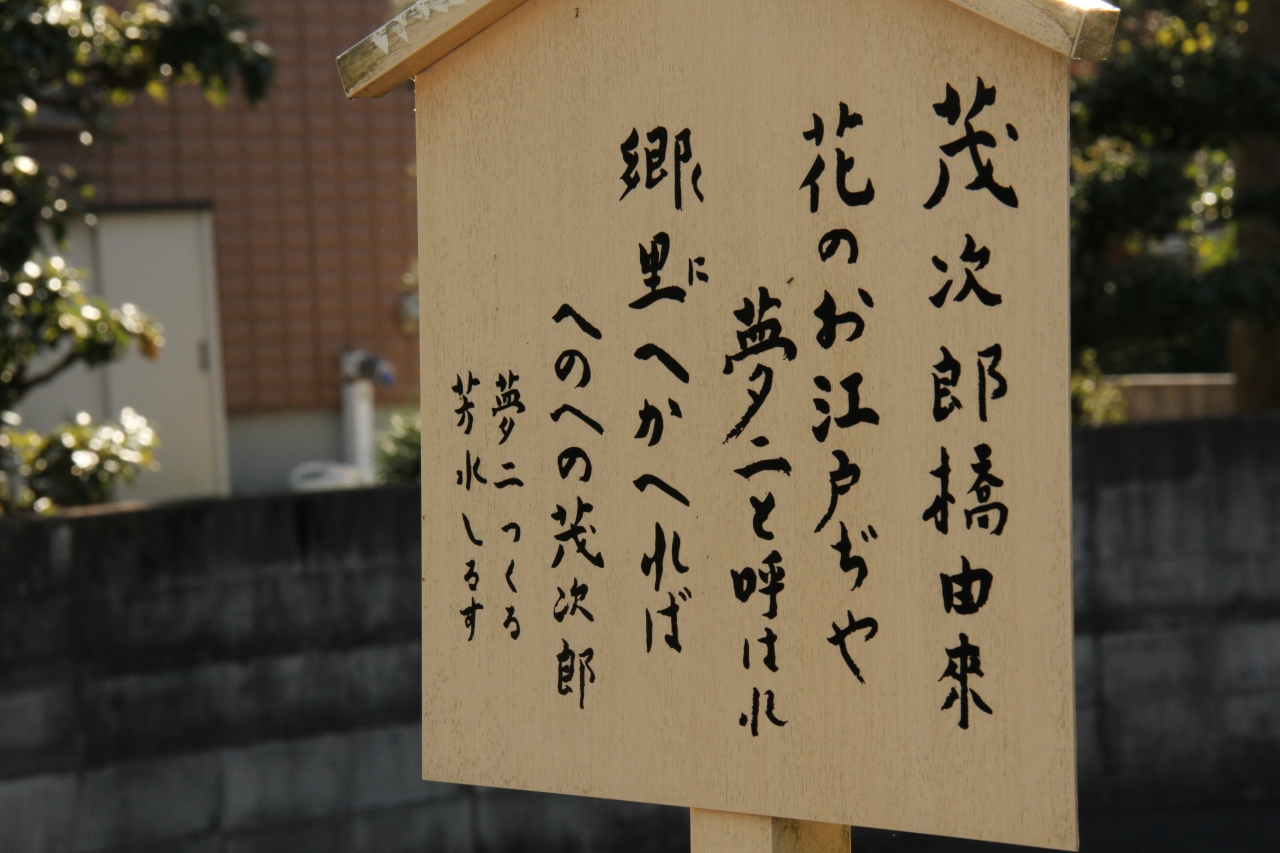 茂次郎橋由來
花のお江戸ぢや
夢二と呼はれ
郷里へかへれば
くに
へのへの茂次郎
夢二つくる
芳水しるす